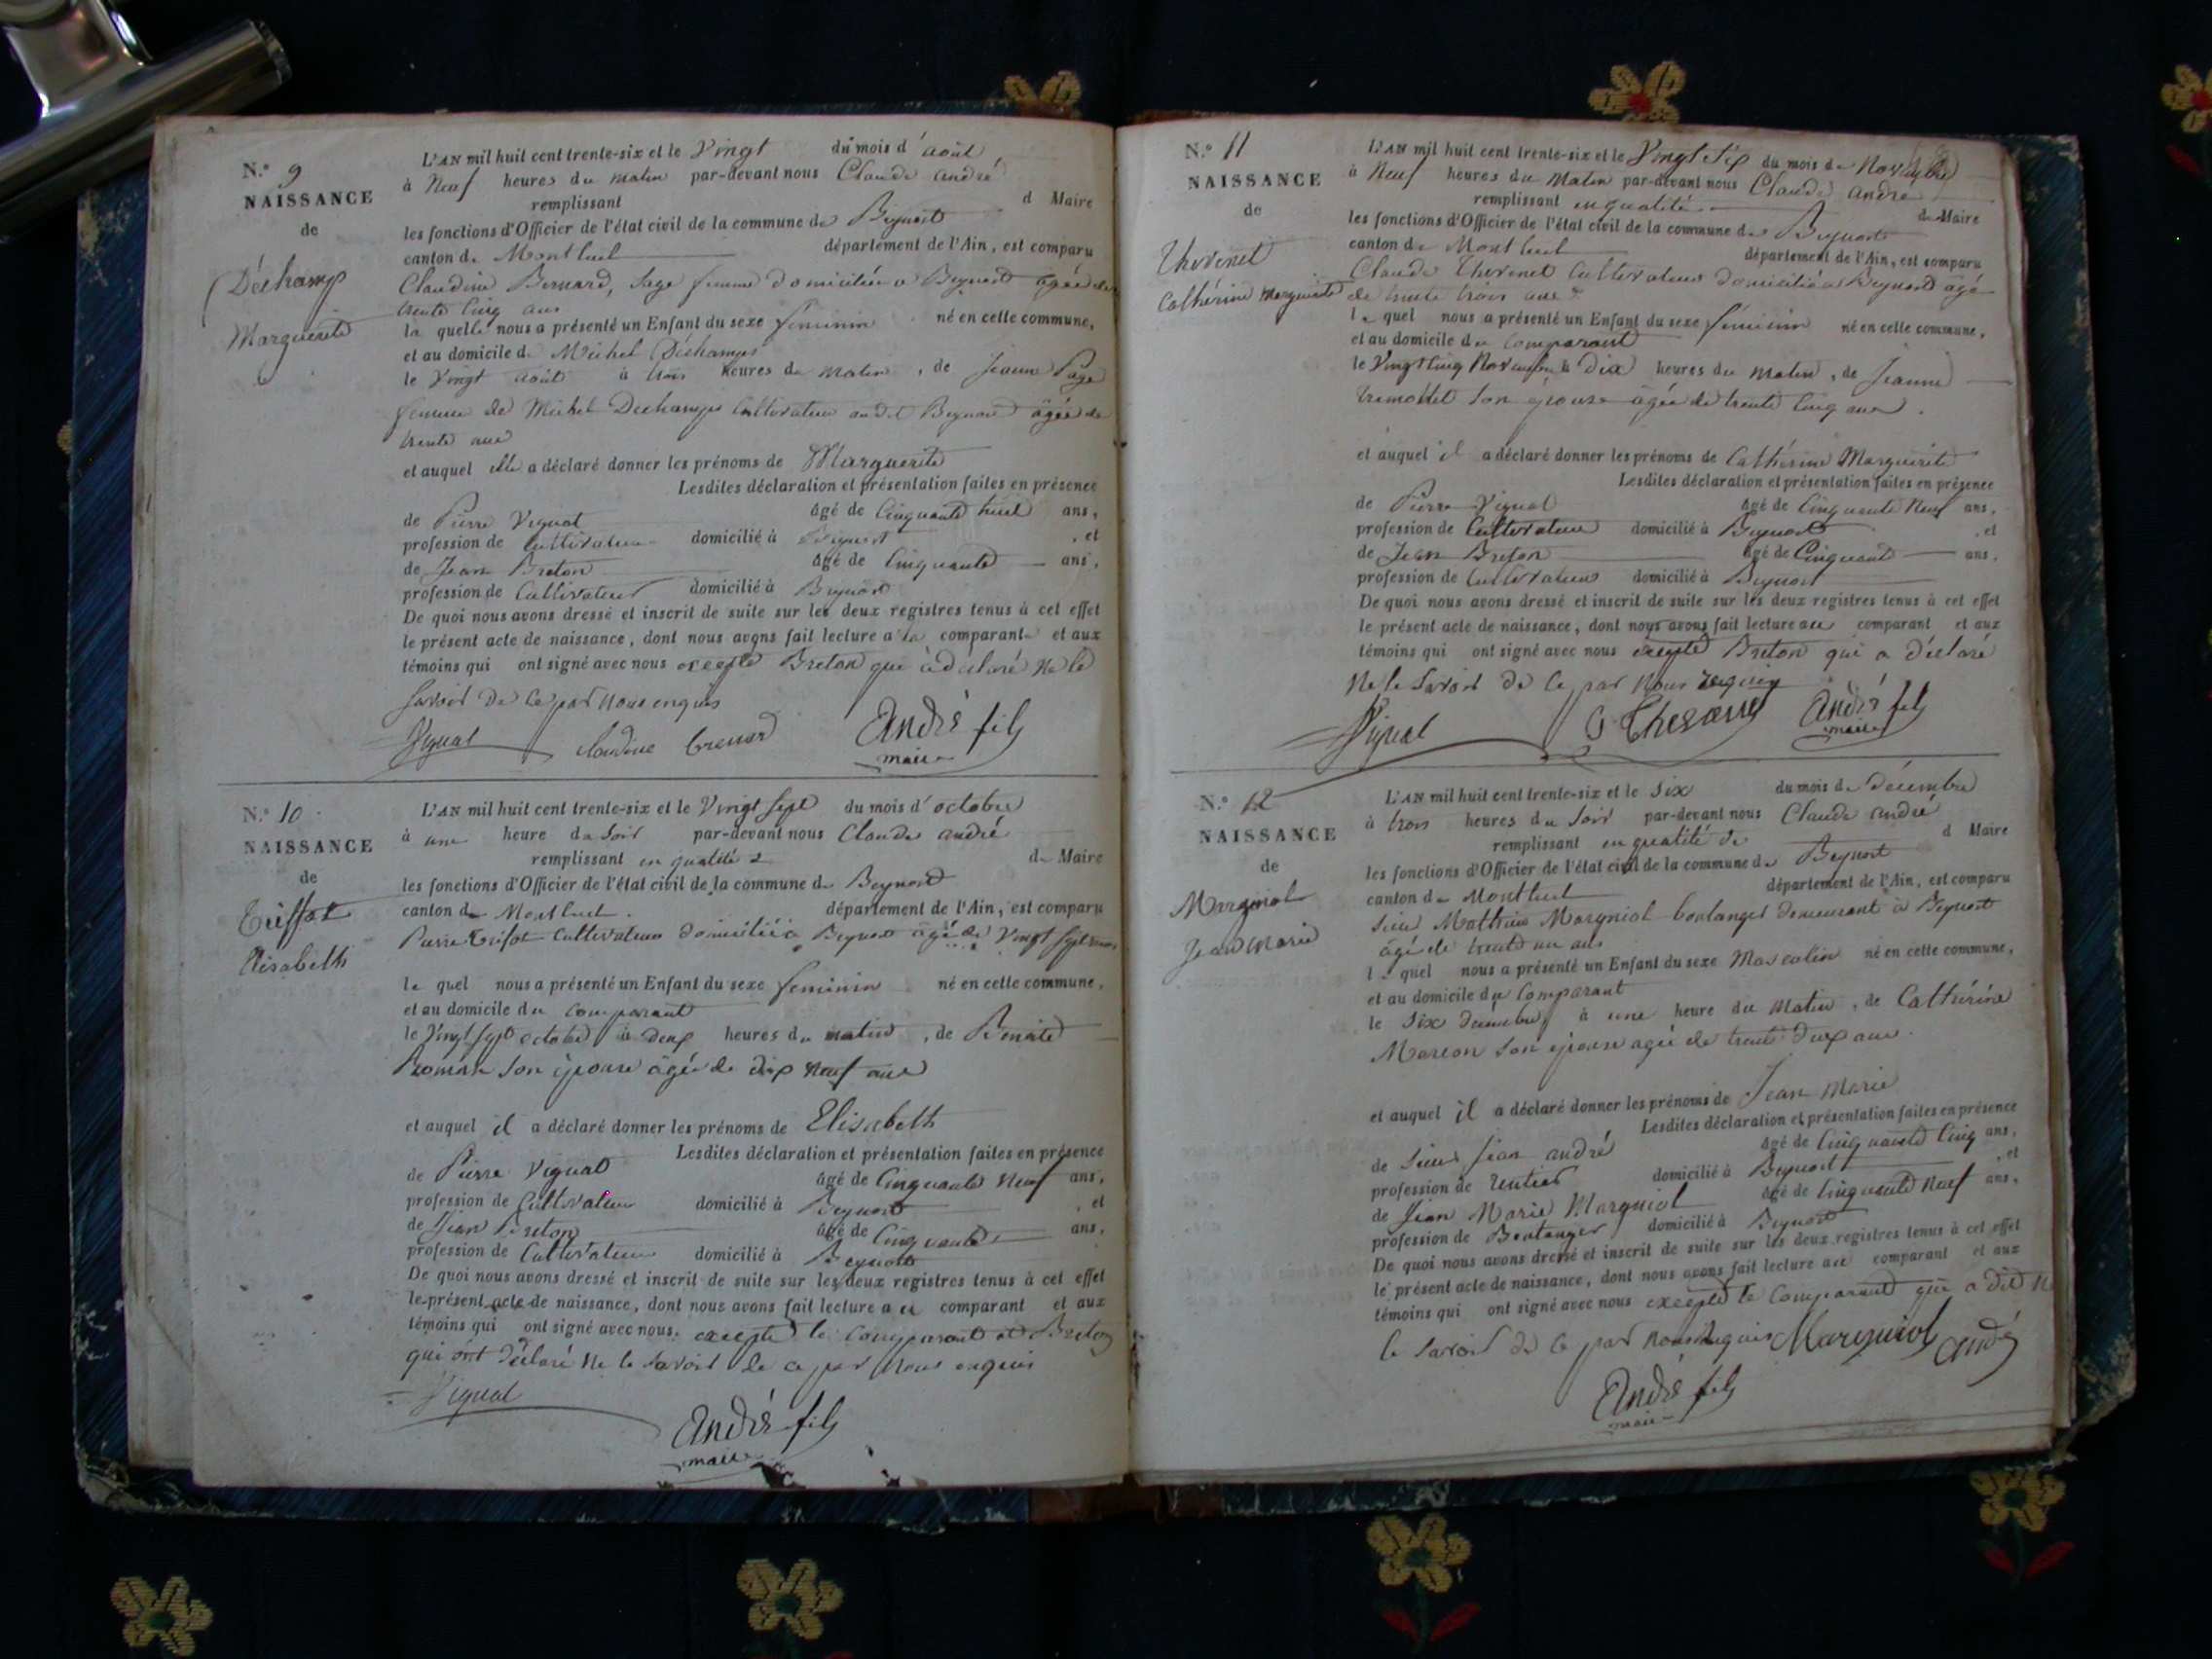 N.º 9
NAISSANCE
de
Déchamp
Marguerite
L'AN mil huit cent trente-six et le Vingt du mois d'août
à Neuf heures du matin par-devant nous Claude andré
remplissant d Maire
les fonctions d'Officier de l'état civil de la commune de Beynost
canton de Montluel département de l'Ain, est comparu
Claudine Bernard, Sage femme domiciliée a Beynost agée de
trente Cinq ans
la quelle nous a présenté un Enfant du sexe feminin né en cette commune,
et au domicile de Michel Déchamps
le Vingt août à trois heures du matin, de Jeanne Page
femme de Michel Dechamps Cultivateur au dit Beynost âgée de
trente ans
et auquel elle a déclaré donner les prénoms de Marguerite
Lesdites déclaration et présentation faites en présence
de Pierre Vignat âgé de Cinquante huit ans,
profession de Cultivateur domicilié à Beynost, et
de Jean Breton âgé de Cinquante ans,
profession de Cultivateur domicilié à Beynost
De quoi nous avons dressé et inscrit de suite sur les deux registres tenus à cet effet
le présent acte de naissance, dont nous avons fait lecture a la comparante et aux
témoins qui ont signé avec nous excepté Breton qui à déclaré Ne le
Savoir De Ce par Nous enquis
Vignat Claudine bernard André fils
maire
N.º 10
NAISSANCE
de
Triffat
Elisabeth
L'AN mil huit cent trente-six et le Vingt Sept du mois d'octobre
à une heure du Soir par-devant nous Claude andré
remplissant en qualité de Maire
les fonctions d'Officier de l'état civil de la commune de Beynost
canton de Montluel département de l'Ain, est comparu
Pierre Cultivateur domicilié à Beynost âgé de Vingt Sept ans
le quel nous a présenté un Enfant du sexe feminin né en cette commune,
et au domicile du comparant
le Vingt Sept octobre à deux heures du matin, de Benoite
Roman Son épouse âgée de dix Neuf ans
et auquel il a déclaré donner les prénoms de Elisabeth
Lesdites déclaration et présentation faites en présence
de Pierre Vignat âgé de Cinquante Neuf ans,
profession de Cultivateur domicilié à Beynost, et
de Jean Breton âgé de Cinquante ans,
profession de Cultivateur domicilié à Beynost
De quoi nous avons dressé et inscrit de suite sur les deux registres tenus à cet effet
le présent acte de naissance, dont nous avons fait lecture au comparant et aux
témoins qui ont signé avec nous, excepté le Comparant et Breton
qui ont déclaré Ne le Savoir de ce par Nous enquis
Vignat
André fils
maire
N.º 11
NAISSANCE
de
Thevenet
Cathérine Marguerite
L'AN mil huit cent trente-six et le Vingt Six du mois de Novembre
à Neuf heures du Matin par-devant nous Claude andré
remplissant en qualité de Maire
les fonctions d'Officier de l'état civil de la commune de Beynost
canton de Montluel département de l'Ain, est comparu
Claude Thevenet Cultivateur domicilié à Beynost agé
de trente trois ans
le quel nous a présenté un Enfant du sexe féminin né en cette commune,
et au domicile du comparant
le Vingt Cinq Novembre à Dix heures du matin, de Jeanne
Son épouse âgée de trente Cinq ans.
et auquel il a déclaré donner les prénoms de Cathérine Marguerite
Lesdites déclaration et présentation faites en présence
de Pierre Vignat âgé de Cinquante Neuf ans,
profession de Cultivateur domicilié à Beynost, et
de Jean Breton âgé de Cinquante ans,
profession de Cultivateur domicilié à Beynost
De quoi nous avons dressé et inscrit de suite sur les deux registres tenus à cet effet
le présent acte de naissance, dont nous avons fait lecture au comparant et aux
témoins qui ont signé avec nous excepté Breton qui a déclaré
Ne le Savoir de Ce par Nous requis
Vignat André fils
maire
N.º 12
NAISSANCE
de
Margniol
Jean Marie
L'AN mil huit cent trente-six et le Six du mois de décembre
à trois heures du Soir par-devant nous Claude andré
remplissant en qualité de d Maire
les fonctions d'Officier de l'état civil de la commune de Beynost
canton de Montluel département de l'Ain, est comparu
Sieur Mathieu Margniol boulanger demeurant à Beynost
âgé de trente un ans
le quel nous a présenté un Enfant du sexe Masculin né en cette commune,
et au domicile du Comparant
le Six décembre, à une heure du Matin, de Cathérine
Marion Son épouse agée de trente Deux ans.
et auquel il a déclaré donner les prénoms de Jean Marie
Lesdites déclaration et présentation faites en présence
de Sieur Jean andré âgé de Cinquante Cinq ans,
profession de rentier domicilié à Beynost, et
de Jean Marie Margniol âgé de Cinquante Neuf ans,
profession de Boulanger domicilié à Beynost
De quoi nous avons dressé et inscrit de suite sur les deux registres tenus à cet effet
le présent acte de naissance, dont nous avons fait lecture au comparant et aux
témoins qui ont signé avec nous excepté le Comparant qui a dit Ne
le Savoir de Ce par Nous Requis Margniol André
André fils
maire